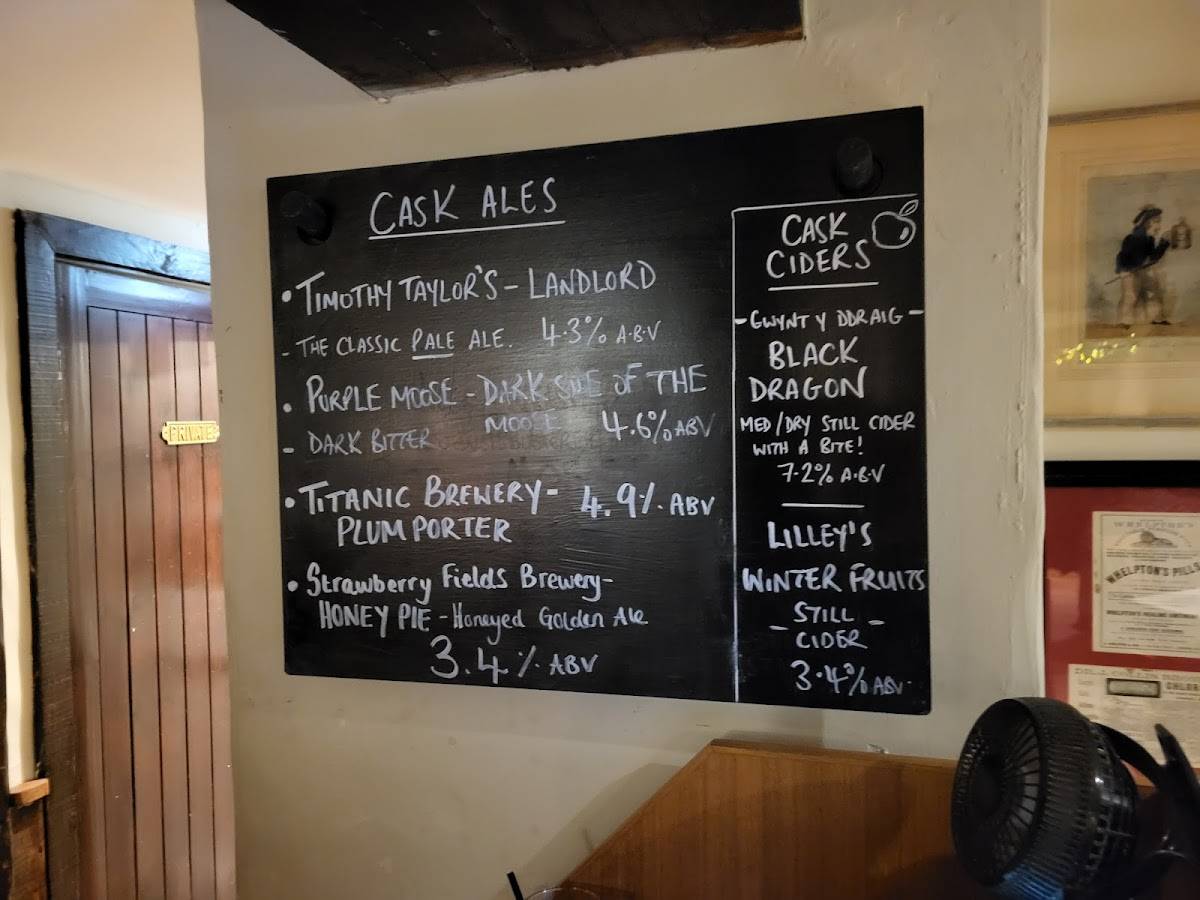 CASK ALES
• TIMOTHY TAYLOR'S - LANDLORD
- THE CLASSIC PALE ALE. 4.3% A.B.V
• PURPLE MOOSE - DARK SIDE OF THE
MOOSE 4.6% ABV
- DARK BITTER
• TITANIC BREWERY - 4.9% ABV
PLUM PORTER
• Strawberry Fields Brewery -
HONEY PIE - Honeyed Golden Ale
3.4% ABV
CASK
CIDERS
- GWYNT Y DDRAIG -
BLACK
DRAGON
MED/DRY STILL CIDER
WITH A BITE!
7.2% A.B.V
LILLEY'S
WINTER FRUITS
- STILL -
CIDER
3.4% ABV
PRIVATE
WHELPTON'S
WHELPTON'S PILLS